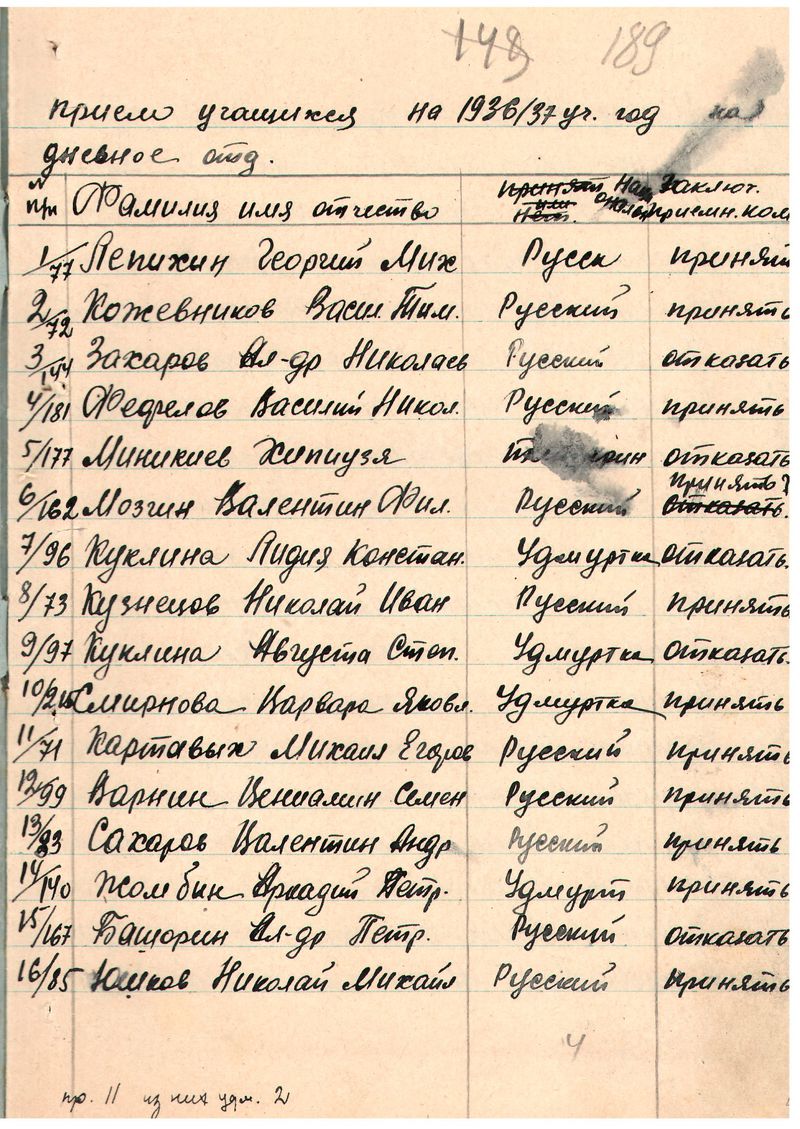 148 189
прием учащихся на 1936/37 уч. год на
дневное отд.
№ пп Фамилия имя отчество принят или нет. Национальн Заключ. приемн. ком
1/77 Лепихин Георгий Мих Русск принять
2/72 Кожевников Васил. Тим. Русский принять
3/144 Захаров Ал-др Николаев Русский отказать
4/181 Фефелов Василий Никол. Русский принять
5/177 Миникиев отказать
6/162 Мозгин Валентин Фил. Русский принять отказать.
7/96 Куклина Лидия Констан. Удмуртка отказать.
8/73 Кузнецов Николай Иван Русский принять
9/97 Куклина Августа Степ. Удмуртка отказать.
Смирнова Варвара Яковл. Удмуртка принять
11/71 Картавых Михаил Егоров Русский принять
12/99 Варнин Вениамин Семен Русский принять
Сахаров Валентин Андр Русский принять
14/140 Жомбин Аркадий Петр. Удмурт принять
15/167 Башорин Ал-др Петр. Русский отказать
16/85 Юшков Николай Михайл Русский принять
4
пр. 11 из них удм. 2